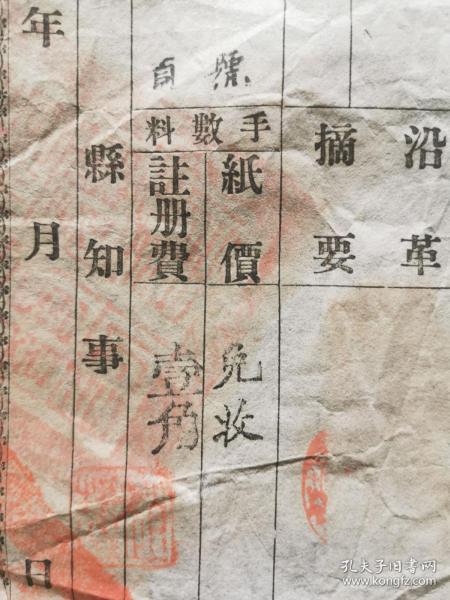 沿革
摘要
手數料
紙價
免收
註册費
壹角
縣知事
年月日
孔夫子旧书网
www.kongfz.com